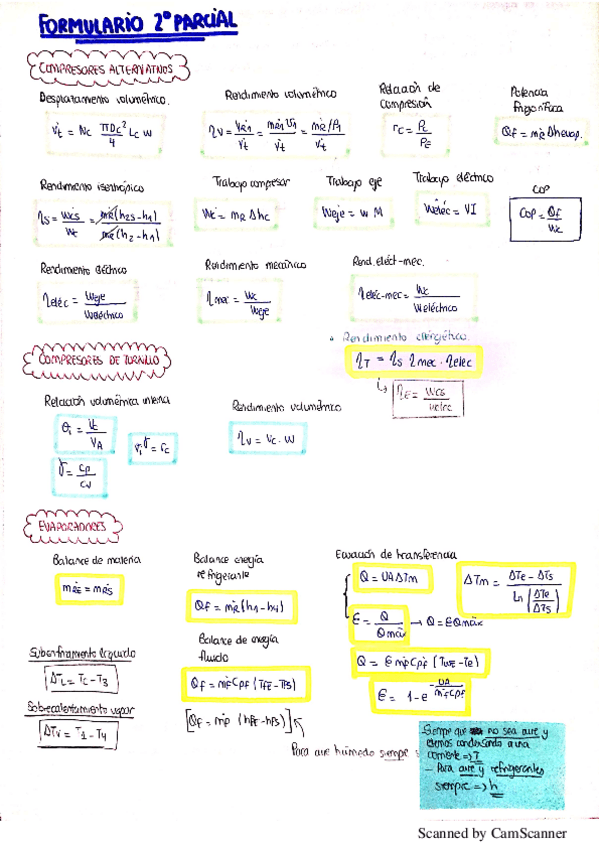 FORMULARIO 2º PARCIAL
COMPRESORES ALTERNATIVOS
Desplazamiento volumétrico.
V̇t = Nc πDc²/4 Lc w
Rendimiento volumétrico
ηv = V̇R1/V̇t = ṁR1 v1/V̇t = ṁR/ρ1/V̇t
Relación de compresión
rc = Pc/PE
Potencia frigorífica
Q̇f = ṁR Δhevap.
Rendimiento isentrópico
ηs = Wcs/Wc = ṁR(h2s-h1)/ṁR(h2-h1)
Trabajo compresor
Ẇc = ṁR Δhc
Trabajo eje
Weje = w M
Trabajo eléctrico
Ẇeléc = VI
COP
COP = Qf/Wc
Rendimiento eléctrico
ηeléc = Weje/Weléctrico
Rendimiento mecánico
ηmec = Wc/Weje
Rend. eléct-mec.
ηeléc-mec = Wc/Weléctrico
• Rendimiento energético.
ηT = ηs ηmec · ηeléc
↳ ηE = Wcs/Weléc
COMPRESORES DE TORNILLO
Relación volumétrica interna
Vc/VA
vi^γ = rc
γ = cp/cv
Rendimiento volumétrico
ηv = Vc · W
EVAPORADORES
Balance de materia
ṁRE = ṁRS
Balance energía refrigerante
Q̇f = ṁR(h1-h4)
Balance de energía fluido
Q̇f = ṁf Cpf (TfE-TfS)
[Q̇f = ṁf (hfE-hfS)]
Para aire húmedo siempre
Ecuación de transferencia
Q = UAΔTm
ΔTm = ΔTe - ΔTs / Ln(ΔTe/ΔTs)
ε = Q/Qmáx → Q = εQmáx
Q = ε ṁf Cpf (TWE-Te)
ε = 1-e^-UA/ṁfCpf
Subenfriamiento líquido
ΔTL = Tc - T3
Sobrecalentamiento vapor
ΔTV = T1 - T4
Siempre que no sea aire y
estemos condensando a una
corriente => T
- Para aire y refrigerantes
siempre => h
Scanned by CamScanner